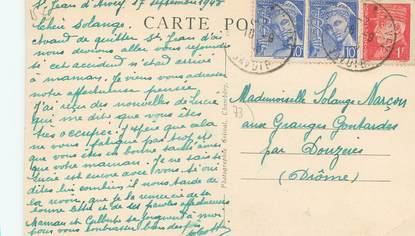 St Jean d'Arvey 17 septembre 1942
Chère Solange
Avant de quitter St Jean d'où
nous devons aller vous rejoindre
cet accident s'est arrivé
à maman. Je viens vous adresser
notre affectueuse pensée
J'ai reçu des nouvelles de Lucie
qui me dit que vous êtes
très occupée. J'espère que cela
ne vous fatigue pas trop et
que vous êtes en bonne santé ainsi
que votre maman. Je ne sais si
Lucie est encore avec vous si oui
dites lui combien il nous tarde de
la revoir, que je la remercie de sa
bonne lettre et de ses paroles affectueuses
Maman et se joignent à moi
pour vous embrasser bien des fois
CARTE POS
SAVOIE
10c
10c
1F
73
Mademoiselle Solange Marçon
aux Granges Gontardes
par Donzères
(Drôme)